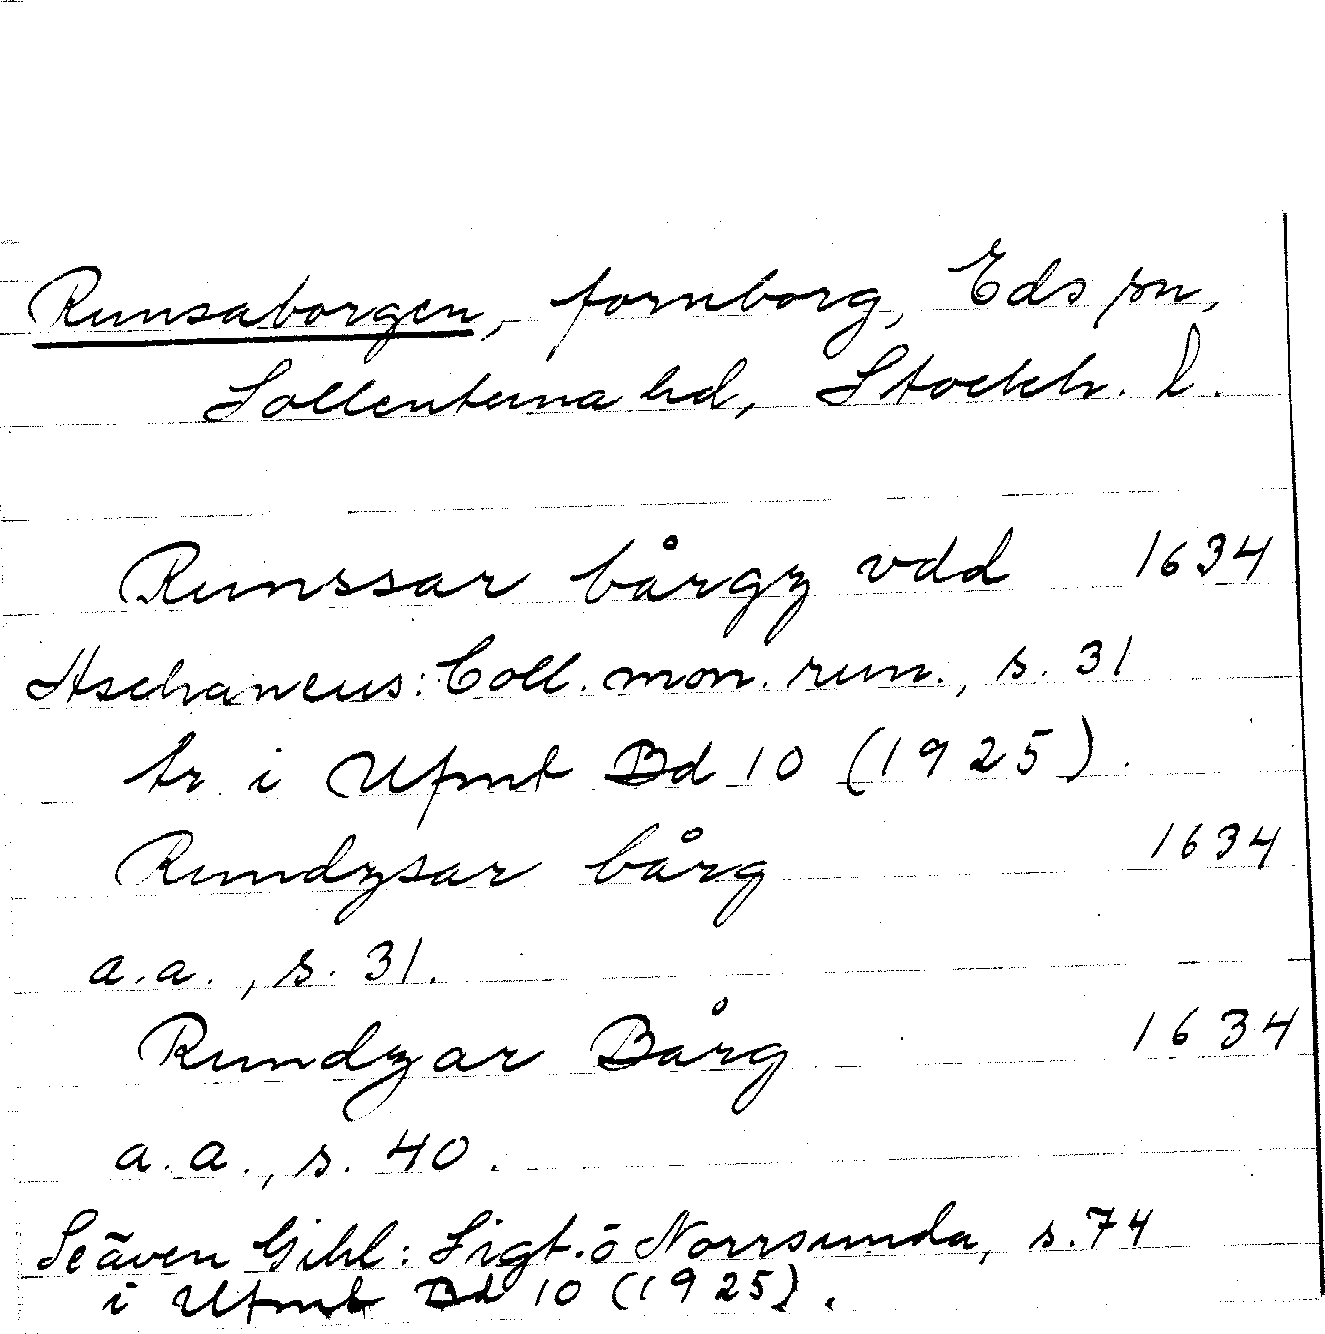 Runsaborgen, fornborg, Eds sn,
Sollentuna hd, Stockh. l.
Runssar bårgz vdd 1634
Aschaneus: Coll. mon. run., s. 31
tr. i Ufmt Bd 10 (1925).
Rundzsar bårg 1634
a.a., s. 31.
Rundzar Bårg 1634
a.a., s. 40.
Se även Gihl: Sigt. o Norrsunda, s. 74
i Ufmt Bd 10 (1925).